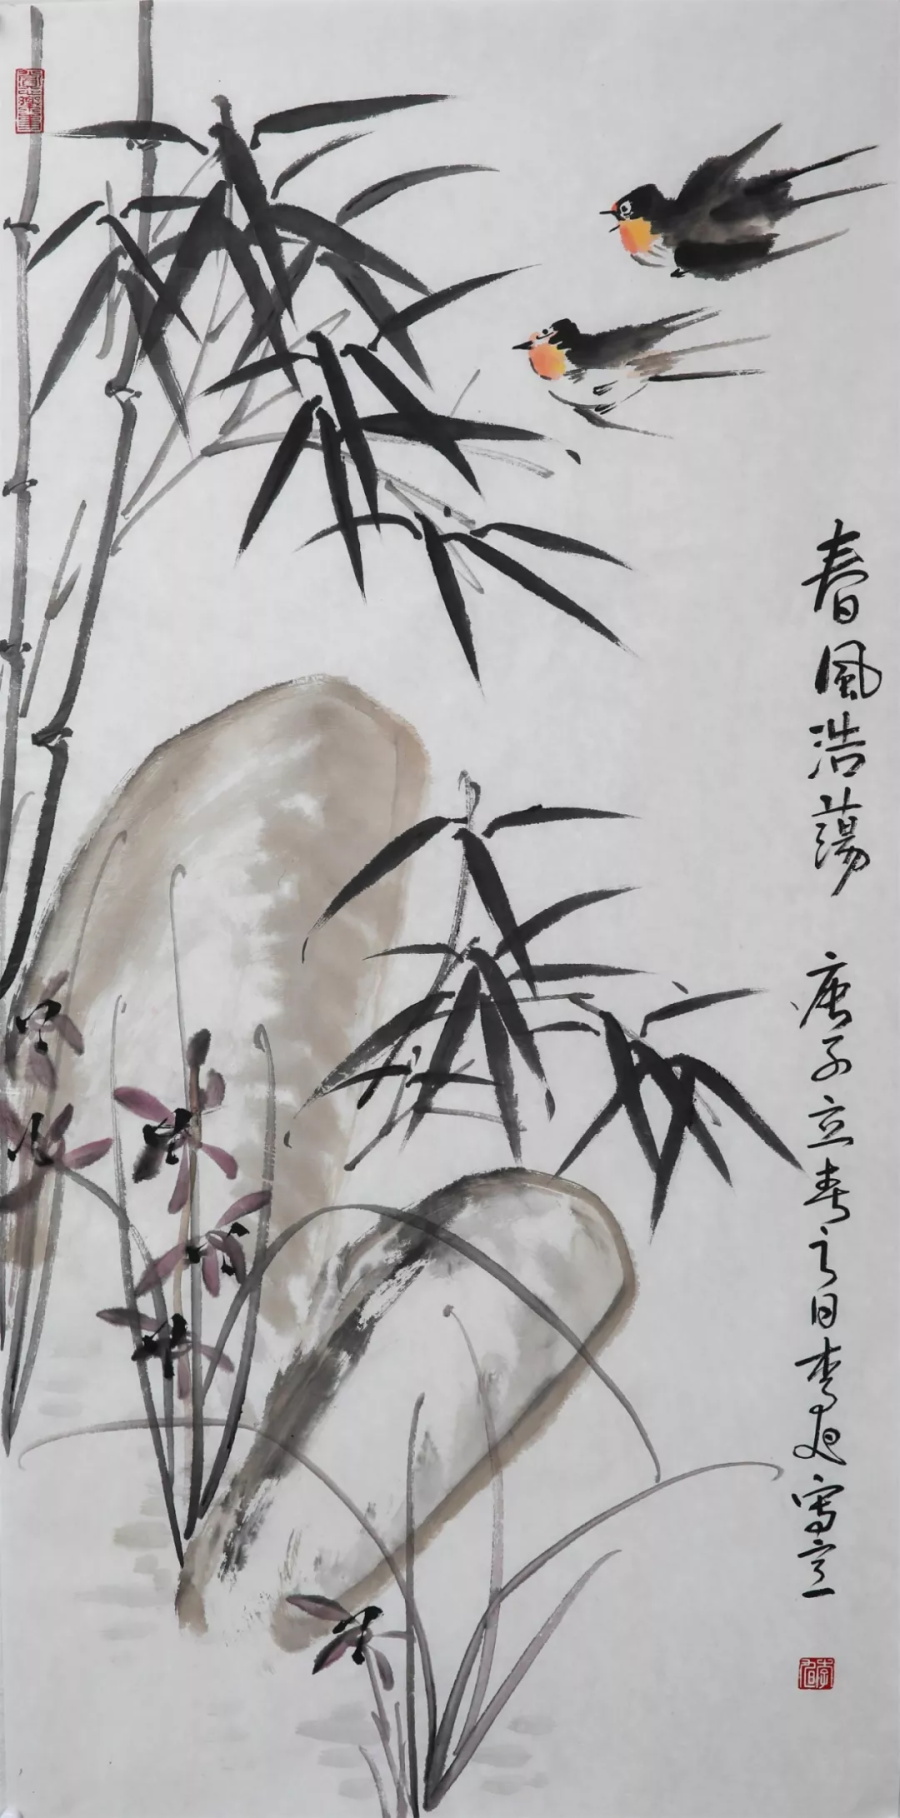 春風浩蕩 庚子立春之日李旭寫意